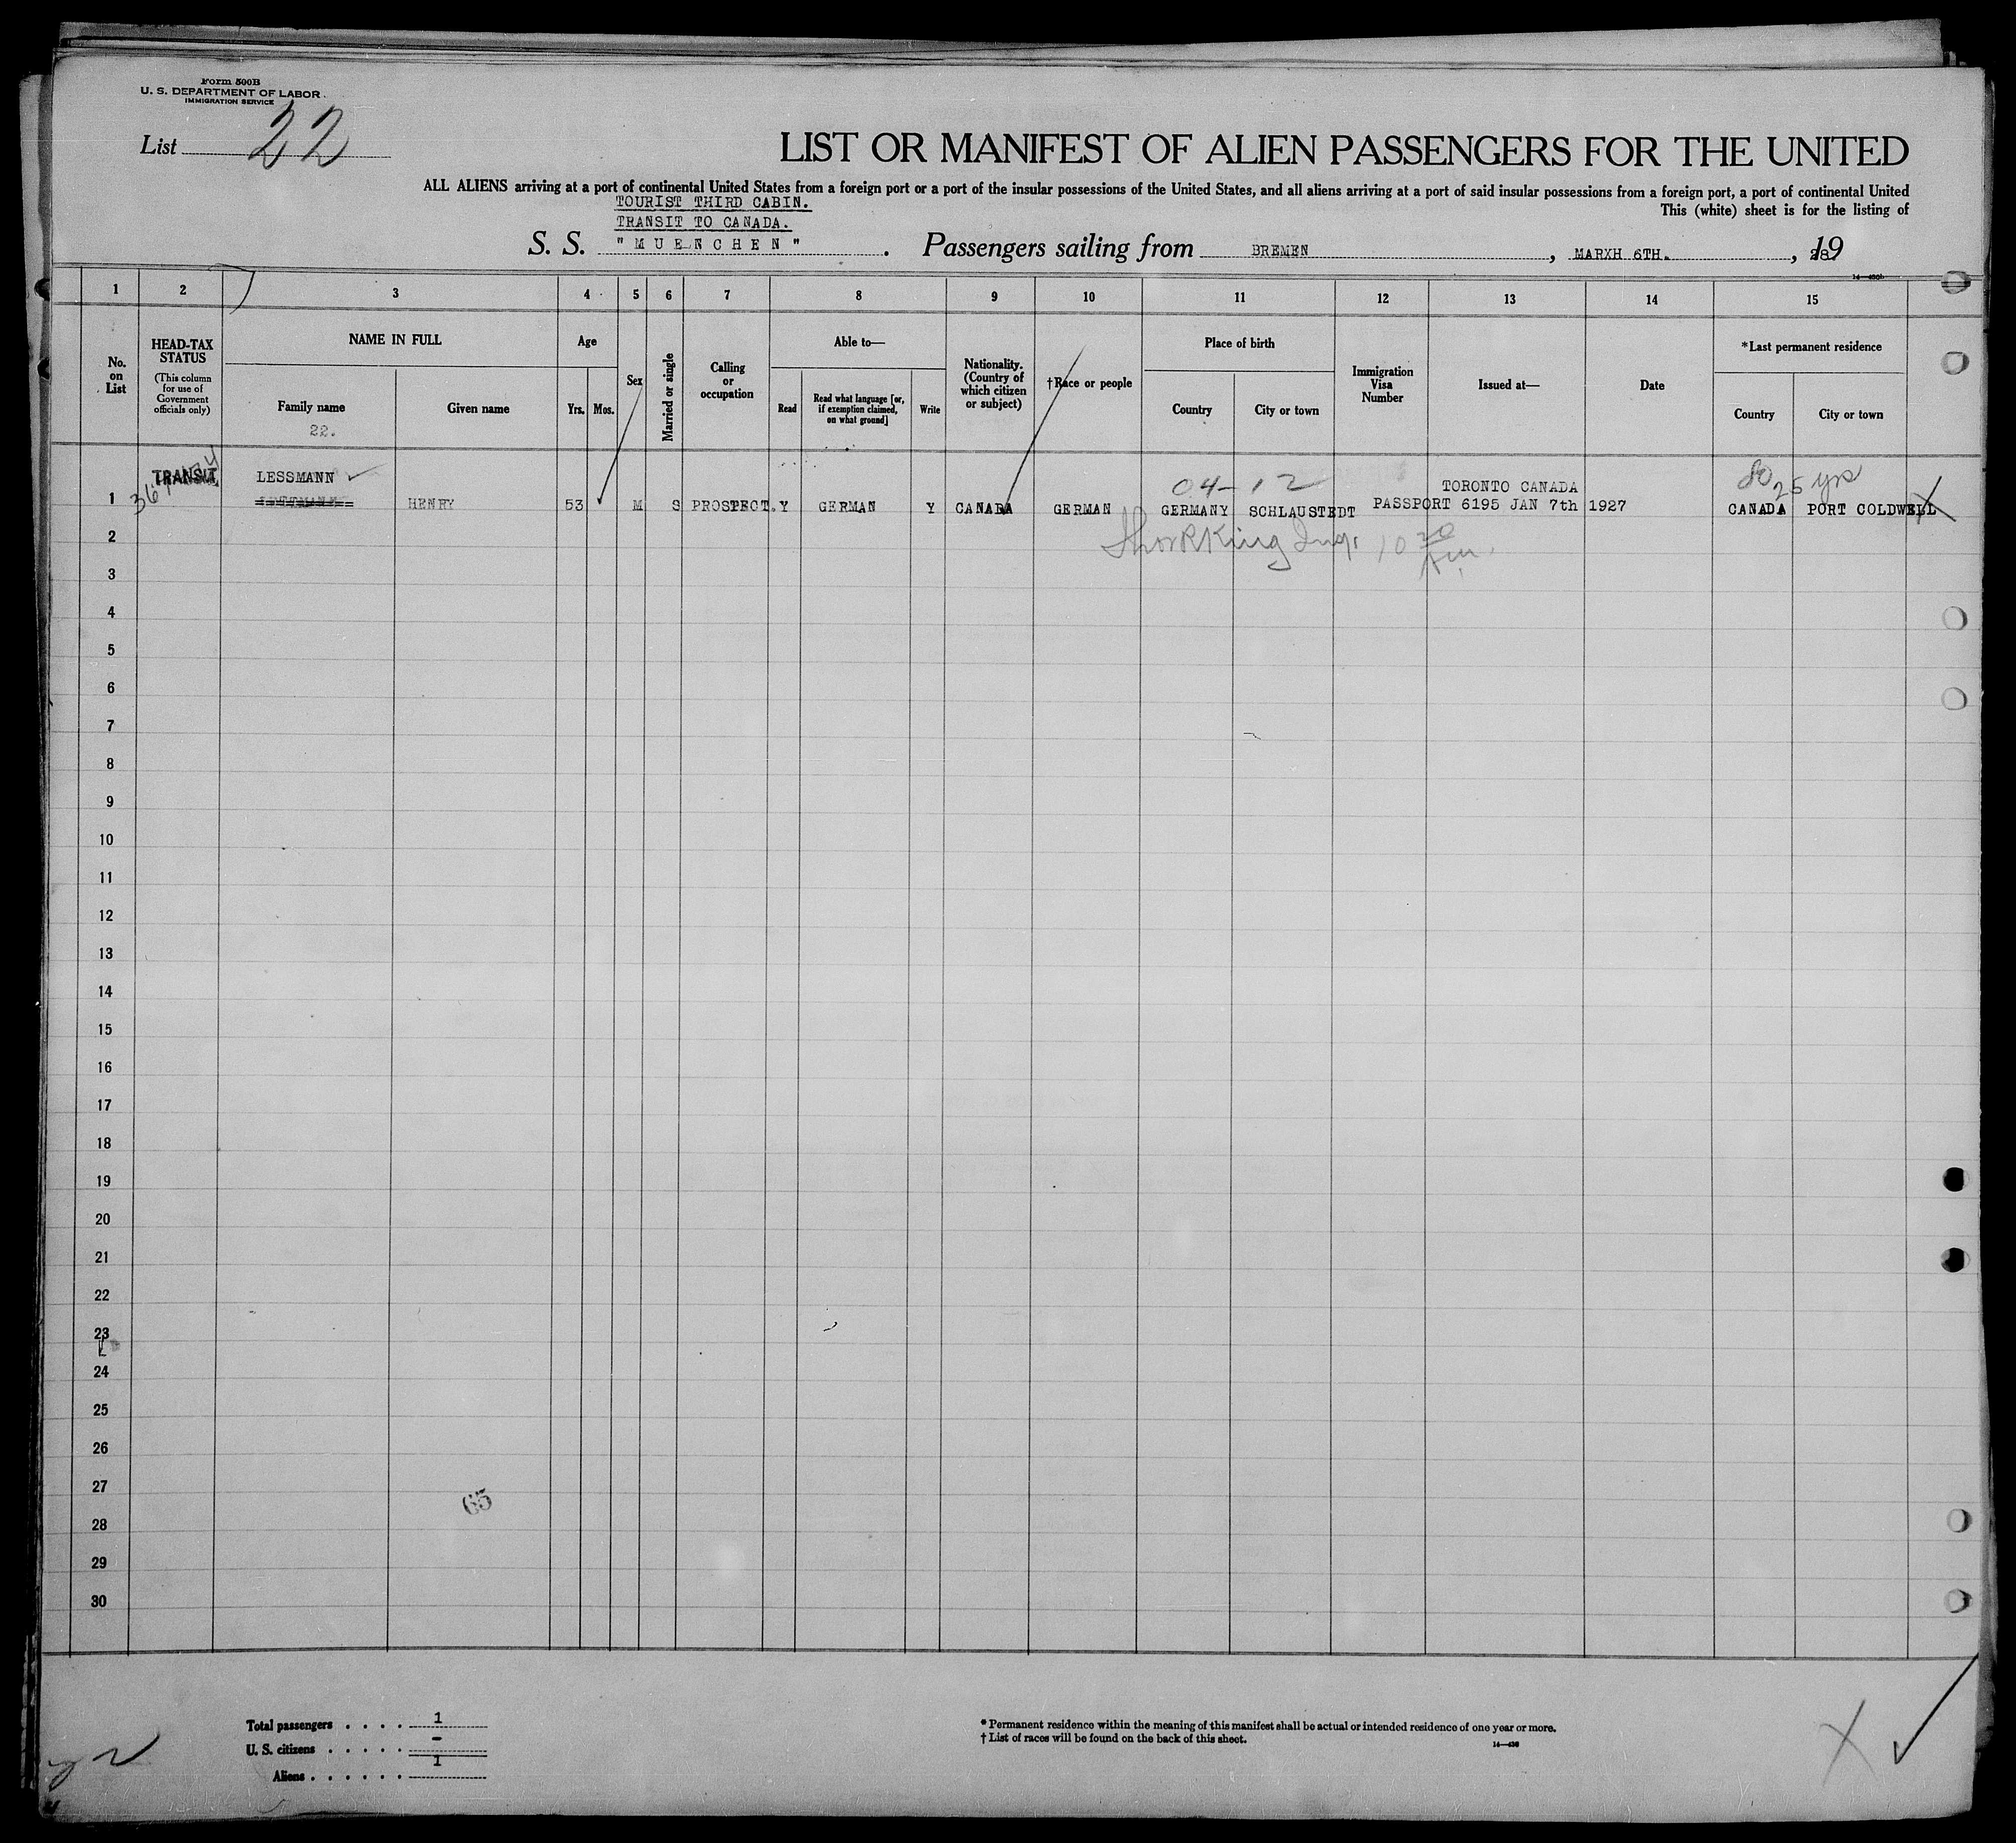 Form 500B
U. S. DEPARTMENT OF LABOR
IMMIGRATION SERVICE
List 22
LIST OR MANIFEST OF ALIEN PASSENGERS FOR THE UNITED
ALL ALIENS arriving at a port of continental United States from a foreign port or a port of the insular possessions of the United States, and all aliens arriving at a port of said insular possessions from a foreign port, a port of continental United
TOURIST THIRD CABIN.
This (white) sheet is for the listing of
TRANSIT TO CANADA.
S. S. "MUENCHEN". Passengers sailing from BREMEN, MARXH 6TH., 1928
1 2 3 4 5 6 7 8 9 10 11 12 13 14 15
No. on List
HEAD-TAX STATUS
(This column for use of Government officials only)
NAME IN FULL
Family name
22.
Given name
Age
Yrs. Mos.
Sex
Married or single
Calling or occupation
Able to—
Read
Read what language [or, if exemption claimed, on what ground]
Write
Nationality. (Country of which citizen or subject)
†Race or people
Place of birth
Country
City or town
Immigration Visa Number
Issued at—
Date
*Last permanent residence
Country
City or town
TRANSIT LESSMANN 04-12 TORONTO CANADA 25 yrs
1 HENRY 53 M S PROSPECT. Y GERMAN Y CANADA GERMAN GERMANY SCHLAUSTEDT PASSPORT 6195 JAN 7th 1927 CANADA PORT COLDWELL
2
3
4
5
6
7
8
9
10
11
12
13
14
15
16
17
18
19
20
21
22
23
24
25
26
27
65
28
29
30
Total passengers . . . . 1
U. S. citizens . . . . . -
Aliens . . . . . . 1
* Permanent residence within the meaning of this manifest shall be actual or intended residence of one year or more.
† List of races will be found on the back of this sheet.